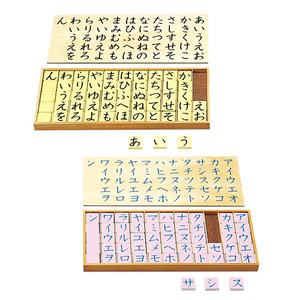 あいうえお
かきくけこ
さしすせそ
たちつてと
なにぬねの
はひふへほ
まみむめも
やいゆえよ
らりるれろ
わいうえを
ん
えお
かきくけこ
さしすせそ
たちつてと
なにぬねの
はひふへほ
まみむめも
やいゆえよ
らりるれろ
わいうえを
ん
あいう
アイウエオ
カキクケコ
サシスセソ
タチツテト
ナニヌネノ
ハヒフヘホ
マミムメモ
ヤイユエヨ
ラリルレロ
ワイウエヲ
ン
アイウエオ
カキクケコ
セソ
タチツテト
ナニヌネノ
ハヒフヘホ
マミムメモ
ヤイユエヨ
ラリルレロ
ワイウエヲ
ン
サシス